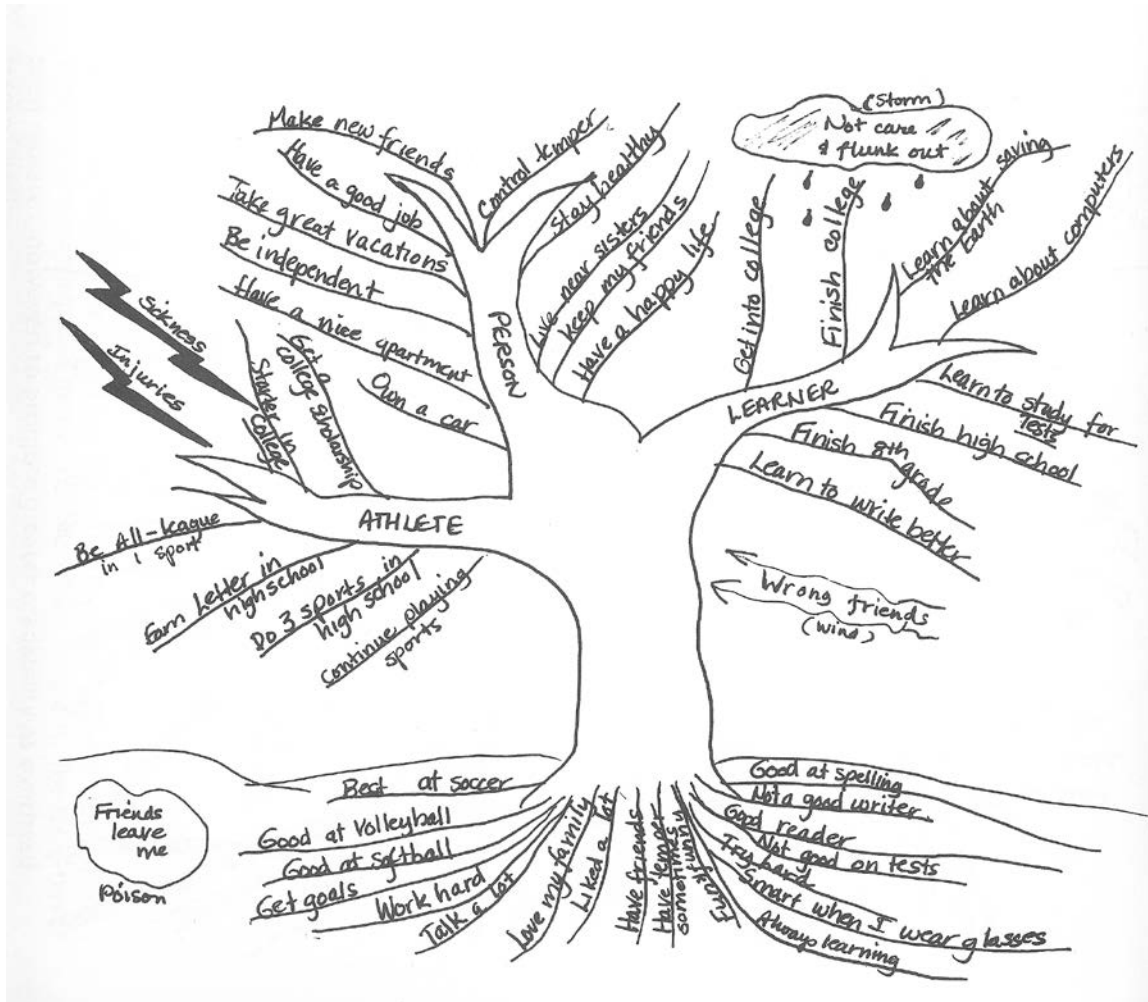 Make new friends
Have a good job
Take great vacations
Be independent
Have a nice apartment
Own a car
PERSON
Control temper
Stay healthy
Live near sisters
keep my friends
Have a happy life
(Storm)
Not care
& flunk out
Get into college
Finish college
Learn about saving
the Earth
Learn about computers
LEARNER
Learn to study for
Tests
Finish high school
Finish 8th
grade
Learn to write better
Sickness
Injuries
Starter in
College
Get a
college scholarship
ATHLETE
Be All-league
in 1 sport
Earn Letter in
high school
Do 3 sports in
high school
continue playing
sports
Wrong friends
(wind)
Friends
leave
me
Poison
Best at soccer
Good at volleyball
Good at softball
Get goals
Work hard
Talk a lot
Love my family
Liked a lot
Have friends
Have temper
sometimes
Funny
Good at spelling
Not a good writer
Good reader
Not good on tests
Try hard
Smart when I wear glasses
Always learning